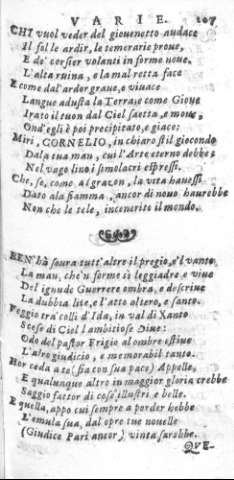 VARIE. 107
CHI vuol veder del giouenetto audace
Il fol le ardir, le temerarie proue,
E de' corsier volanti in forme noue,
L'alta ruina, e la mal retta face
E come dal'ardor graue, e viuace
Langue adusta la Terra; e come Gioue
Irato il tuon dal Ciel saetta, e moue,
Ond'egli è poi precipitato, e giace:
Miri, CORNELIO, in chiaro stil giocondo
Dala tua man, cui l'Arte eterno debbe,
Nel vago lino i simolacri espressi.
Che, se, come a la vita hauessi
Dato ala fiamma, ancor di nouo haurebbe
Non che le tele, incenerito il mondo.
BEN' hà soura tutt'altre il pregio, e'l vanto
La man, che'n forme sì leggiadre e viue
Del ignude Guerrere ombra, e descriue
La dubbia lite, e l'atto altero, e santo.
Veggio tra' colli d'Ida, in val di Xanto
Scese di Ciel l'ambitiose Diue:
Odo del pastor Frigio al'ombre estiue
L'alto giudicio, e memorabil tanto.
Hor ceda a te (sia con sua pace) Appelle,
E qualunque altro in maggior gloria crebbe
Saggio fattor di cose illustri, e belle.
E quella, appo cui sempre a perder hebbe
L'emula sua, dal opre tue nouelle
(Giudice Pari ancor) vinta sarebbe.
QVE-